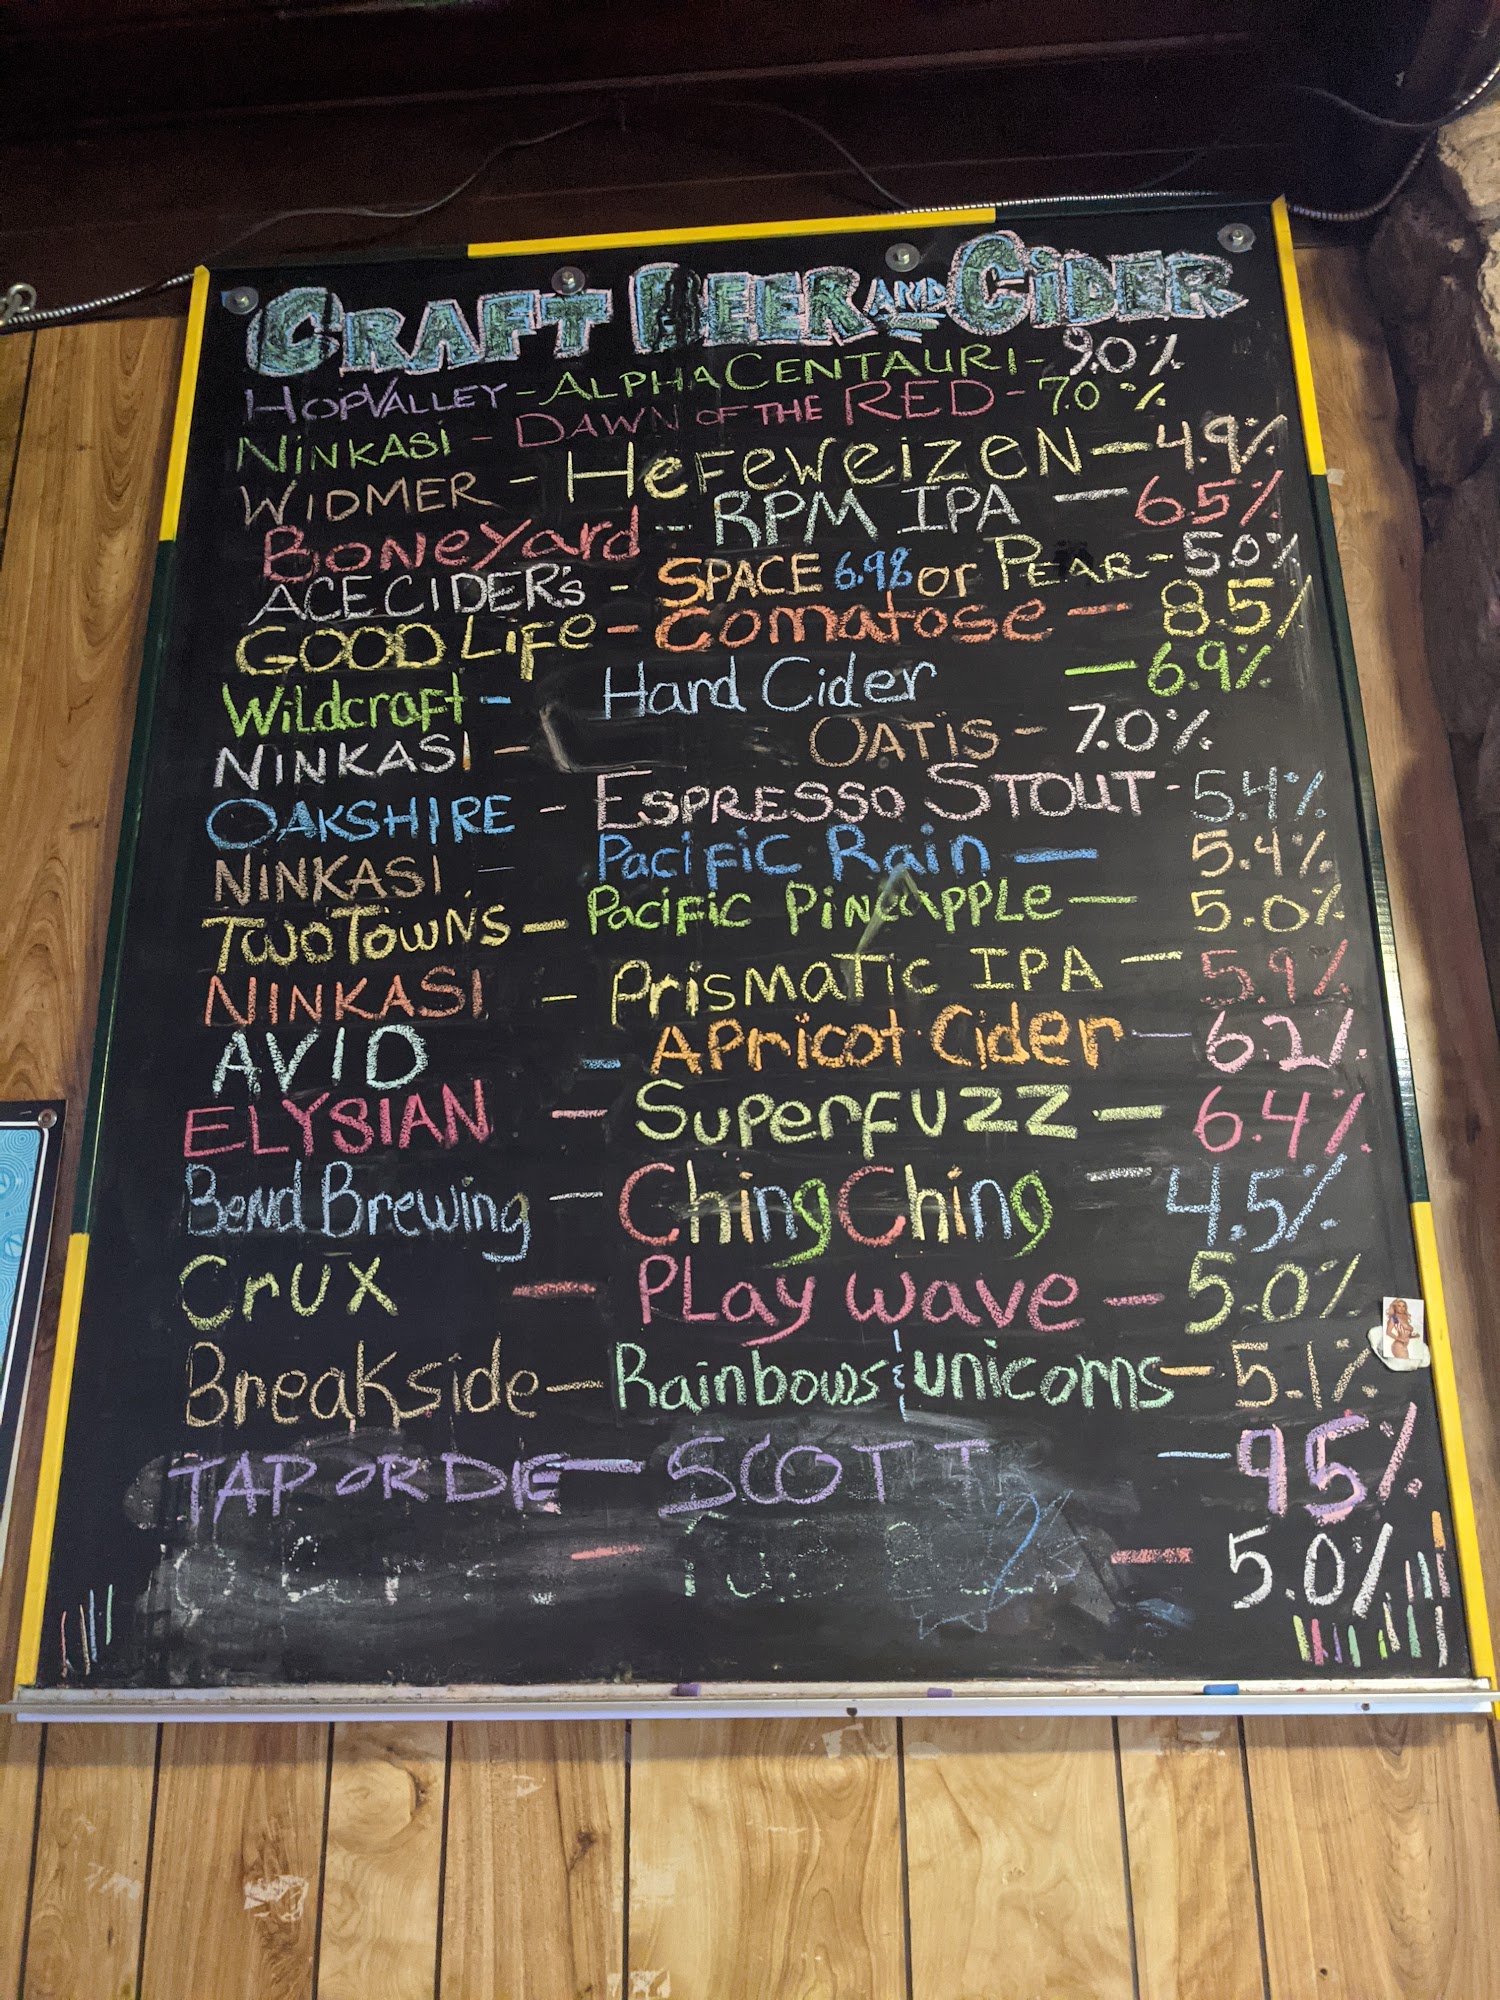 CRAFT BEER AND CIDER
HOPVALLEY - ALPHA CENTAURI - 9.0%
NINKASI - DAWN OF THE RED - 7.0%
WIDMER - HEFEWEIZEN - 4.9%
BONEYard - RPM IPA - 6.5%
ACE CIDER's - SPACE 6.9% or PEAR - 5.0%
GOOD LiFe - Comatose - 8.5%
Wildcraft - Hard Cider - 6.9%
NINKASI - OATIS - 7.0%
OAKSHIRE - ESPRESSO STOUT - 5.4%
NINKASI - Pacific Rain - 5.4%
TWO TOWNS - Pacific PiNeAPPLe - 5.0%
NINKASI - PrisMaTic IPA - 5.9%
AVID - APricot Cider - 6.2%
ELYSIAN - SuperFUZZ - 6.4%
Bend Brewing - Ching Ching - 4.5%
Crux - PLay wave - 5.0%
Breakside - Rainbows & unicorns - 5.1%
TAP OR DIE - SCOTT - 95%
- - 5.0%